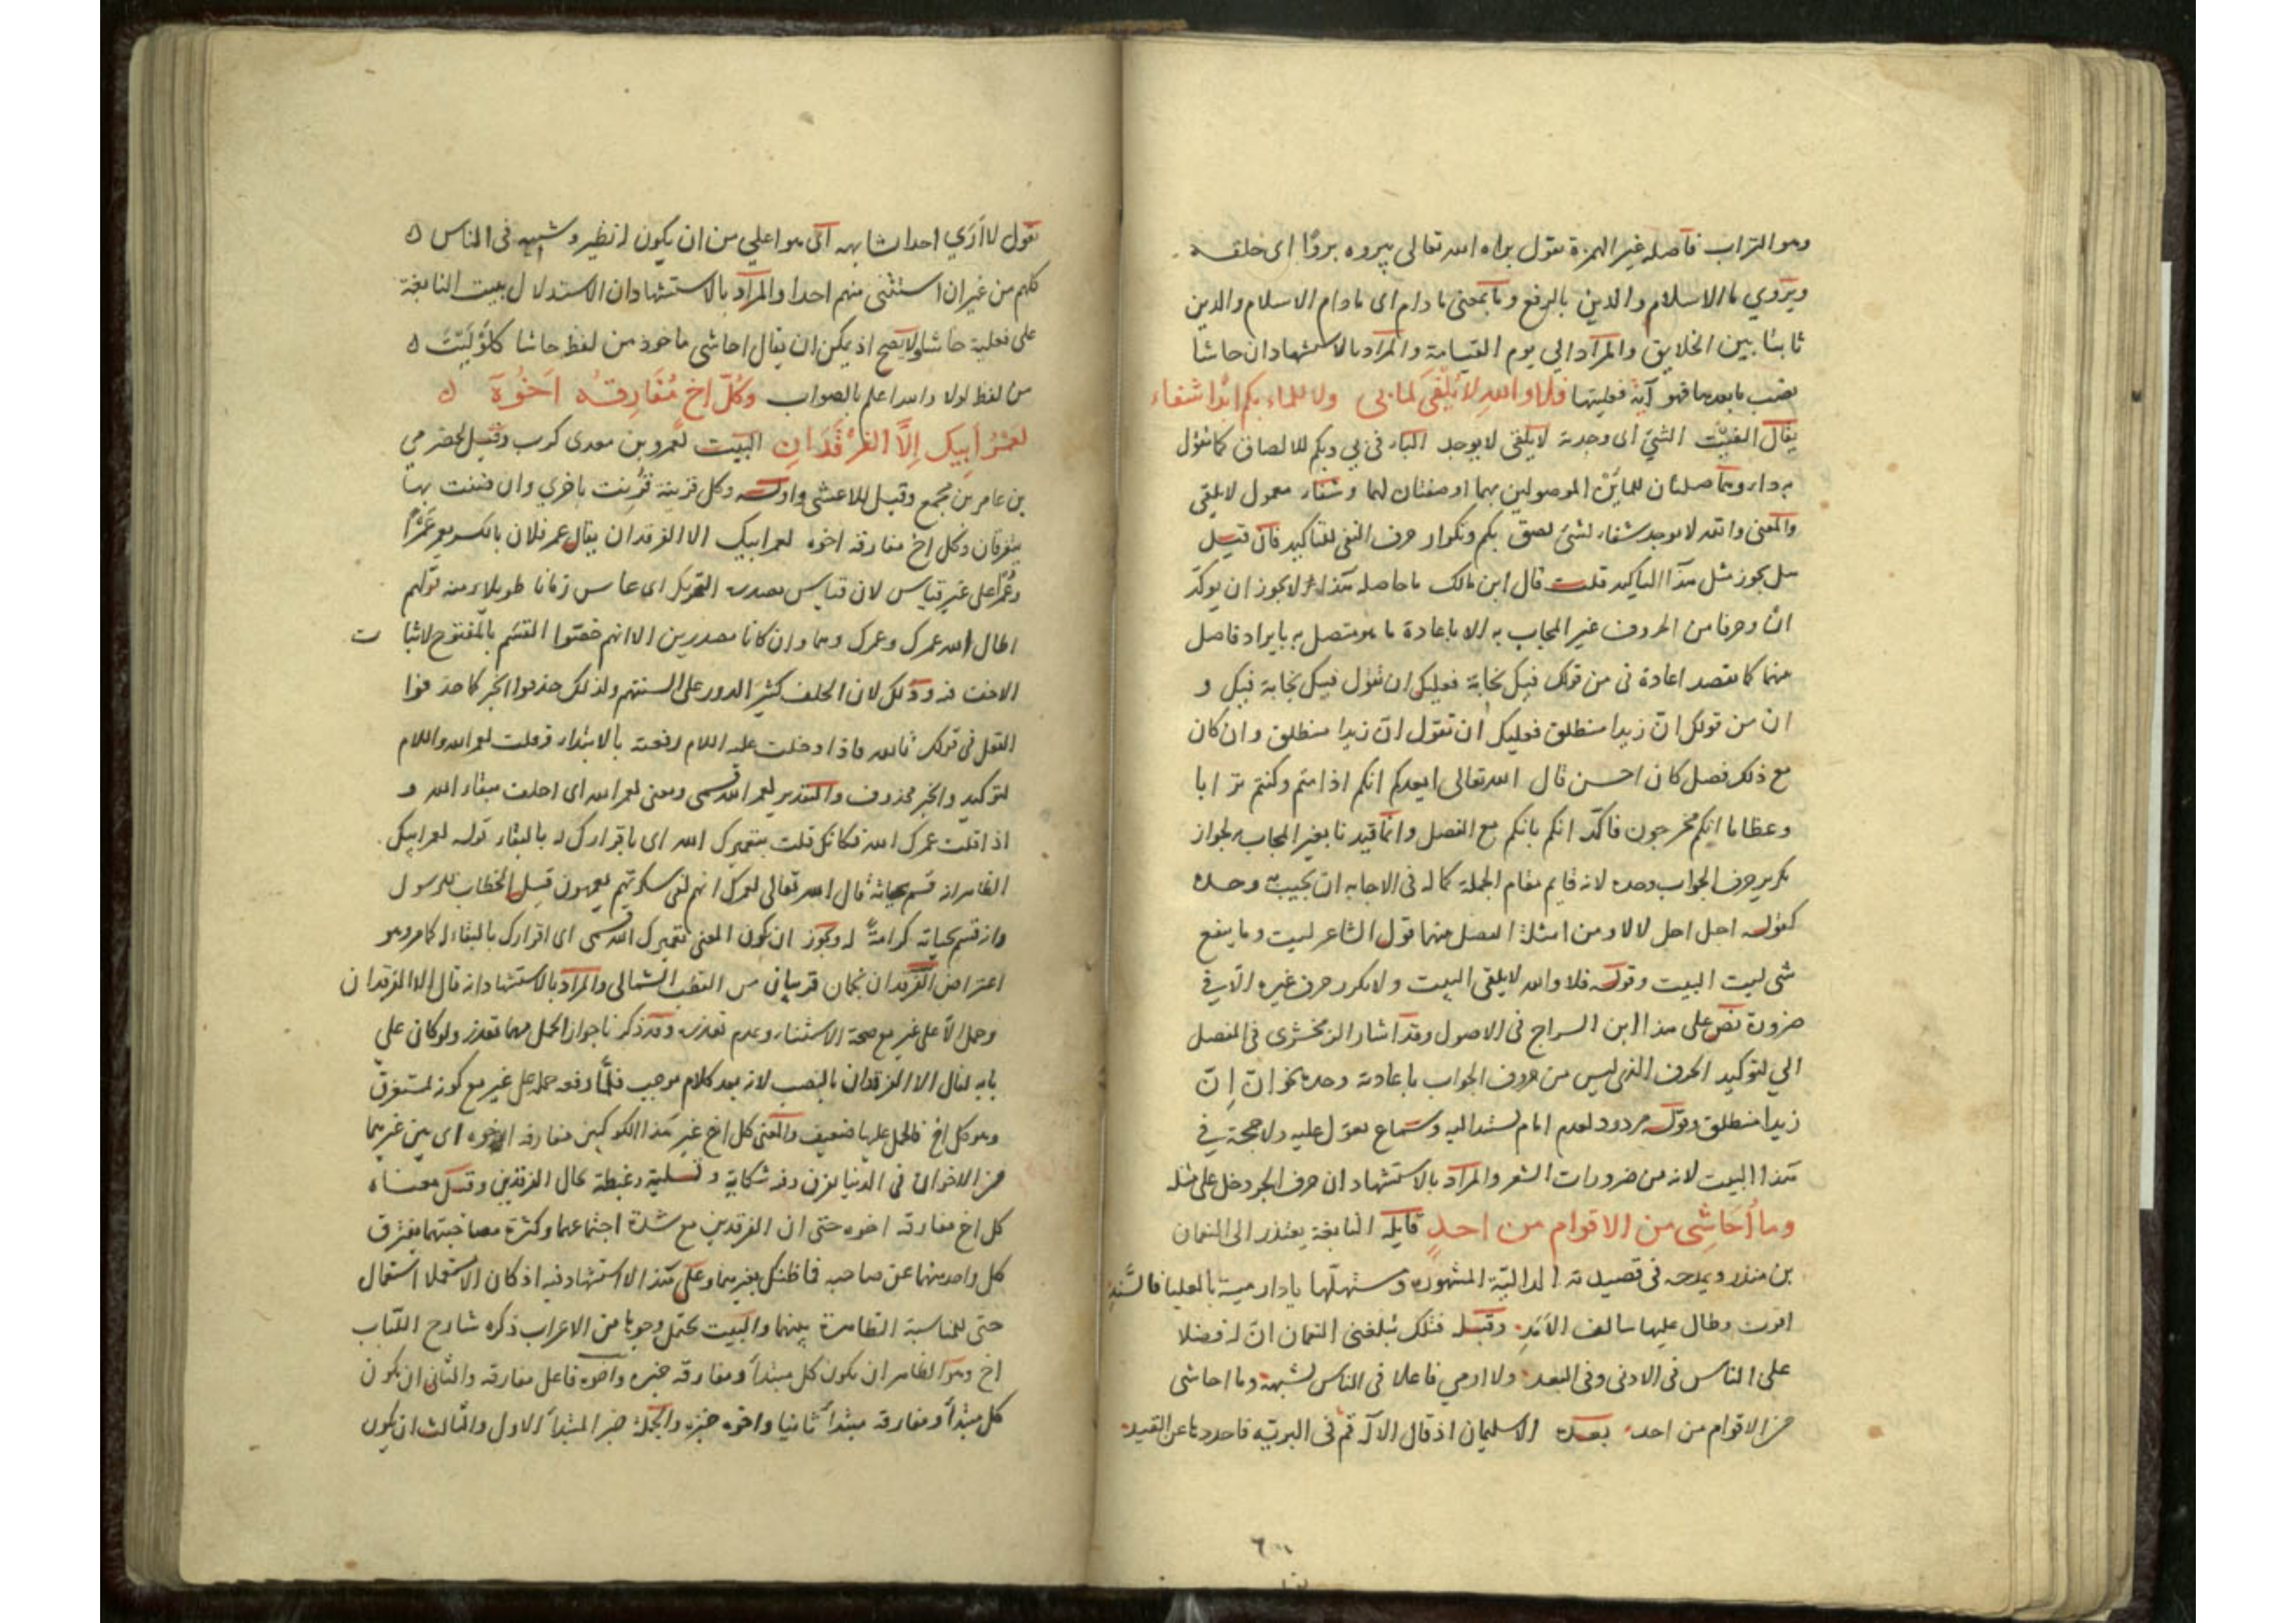 وهو التراب فاصله غير الهمزة تقول براه الله تعالى يبروه بروًا اى خلقه
ويروي ما الاسلام والدين بالرفع وما بمعنى ما دام اى ما دام الاسلام والدين
ثابتا بين الخلايق والمراد الي يوم القيامة والمراد بالاستشهاد ان حاشا
نصب ما بعدها فهو آية فعليتها فلا والله لا يُلْفَى لما بى ولا للما بكم ابدا شفاء
يقال الفيت الشئ اى وجدته لا يلفى لا يوجد الباء فى بى وبكم للالصاق كما تقول
به داء وهما صلتان للمايَيْن الموصولين بهما او صفتان لهما وشفاء معمول لا يلفى
والمعنى والله لا يوجد شفاء لشئ لصق بكم وتكرار حرف النفى للتاكيد فان قيل
هل يجوز مثل هذا التاكيد قلت قال ابن مالك ما حاصله هذا انه لا يجوز ان يوكّد
انّ وحرفا من الحروف غير المجاب به الا باعادة ما هو متصل به بايراد فاصل
منهما كما تقصد اعادة فى من قولك فيك نجابة فعليك ان تقول فيك نجابة فيك و
انّ من قولك انّ زيدا منطلق فعليك ان تقول انّ زيدا منطلق وان كان
مع ذلك فصل كان احسن قال الله تعالى ايعدكم انكم اذا متم وكنتم ترابا
وعظاما انكم مخرجون فاكّد انكم بانكم مع الفصل وانما قيدنا بغير المجاب به لجواز
تكرير حرف الجواب وحده لانه قايم مقام الجملة كما له فى الاجابه ان تجيب به وحده
كقوله اجل اجل لا لا ومن امثلة الفصل منهما قول الشاعر ليت وما ينفع
شى ليت البيت وقوله فلا والله لا يلفى البيت ولا يكرر حرف غيره الا فى
ضرورة نص على هذا ابن السراج فى الاصول وقد اشار الزمخشرى فى المفصل
الي لتوكيد الحرف الذى ليس من حروف الجواب باعادته وحده نحو انّ اِنّ
زيدا منطلق وقوله مردود لعدم امام يستند اليه وسماع يعول عليه ولا حجة فى
هذا البيت لانه من ضرورات الشعر والمراد بالاستشهاد ان حرف الجر دخل على مثله
وما أُحَاشِى من الاقوام من احدٍ قايله النابغة يعتذر الى النعمان
بن منذر ويمدحه فى قصيدته الدالية المشهورة ومستهلّها يا دار مية بالعليا فالسَّندِ
اقوت وطال عليها سالف الأَمَدِ وقبله فتلك تبلغنى النعمان انّ له فضلا
على الناس فى الادنى وفى البعد ولا ارى فاعلا فى الناس يشبهه وما احاشى
من الاقوام من احد بعده الا سليمان اذ قال الالٰه قم فى البرية فاحددها عن الفند
تقول لا أرَي احدا يشابهه اى هو اعلى من ان يكون له نظير وشبيه فى الناس
كلهم من غير ان استثنى منهم احدا والمراد بالاستشهاد ان الاستدلال ببيت النابغة
على فعلية حاشا لا يصح اذ يمكن ان يقال احاشى ماخوذ من لفظ حاشا كلَوْلَيْتَ
من لفظ لولا والله اعلم بالصواب وكُلّ اخ مُفَارِقُه اَخُوهَ
لعَمْرُ أبِيكَ اِلَّا الفَرْقَدَانِ البيت لعمرو بن معدى كرب وقيل لحضرمي
بن عامر بن مجمع وقيل للاعشى واوله وكل قرينة قُرِنت باخرى وان ضننت بها
يتفرقان وكل اخ مفارقه اخوه لعمر ابيك الا الفرقدان يقال عمر فلان بالكسر يعمر عَمْرًا
وعُمْرًا على غير قياس لان قياس مصدره التحريك اى عاش زمانا طويلا ومنه قولهم
اطال الله عمرك وعمرك وهما وان كانا مصدرين الا انهم خصّوا القسم بالمفتوح لاثبات
الاخف فيه وذلك لان الحلف كثير الدور على السنتهم ولذلك حذفوا الخبر كما حذفوا
الفعل فى قولك بالله فاذا دخلت عليه اللام رفعته بالابتداء فقلت لعمر الله واللام
لتوكيد والخبر محذوف والتقدير لعمر الله قسمى ومعنى لعمر الله اى احلف ببقاء الله و
اذا قلت عمرك الله فكانك قلت بتعميرك الله اى باقرارك له بالبقاء قوله لعمر ابيك
الظاهر انه قسم بحياته قال الله تعالى لعمرك انهم لفى سكرتهم يعمهون قيل الخطاب للرسول
وانه قسم بحياته كرامةً له ويجوز ان يكون المعنى بتعميرك الله قسمى اى اقرارك بالبقاء له كما مر وهو
اعتراض الفرقدان نجمان قريبان من القطب الشمالى والمراد بالاستشهاد انه قال الا الفرقدان
وحمل الّا على غير مع صحة الاستثناء وعدم تعذره وقد ذكر ناجواز الحمل مهما تعذر ولو كان على
بابه لقال الا الفرقدان بالنصب لانه بعد كلام موجب فلما رفعه حمله على غير مع كونه لمستغرق
وهو كل اخ فالحمل عليها ضعيف والمعنى كل اخ غير هذا الكوكبين مفارقه اخوه اى بين غيرهما
من الاخوان فى الدنيا يفرق وفيه شكاية وتسلية وغبطة بحال الفرقدين وقيل معناه
كل اخ مفارقه اخوه حتى ان الفرقدين مع شدة اجتماعهما وكثرة مصاحبتهما يفترق
كل واحد منهما عن صاحبه فما ظنك بغيرهما وعلى هذا الاستشهاد فيه اذ كان الا استعمل استعمال
حتى للمناسبة الظاهرة بينهما والبيت يحتمل وجوها من الاعراب ذكره شارح اللباب
اخ وهو الظاهر ان يكون كل مبتدأ ومفارقه خبره واخوه فاعل مفارقه والثانى ان يكون
كل مبتدأ ومفارقه مبتدأ ثانيا واخوه خبره والجملة خبر المبتدأ الاول والثالث ان يكون